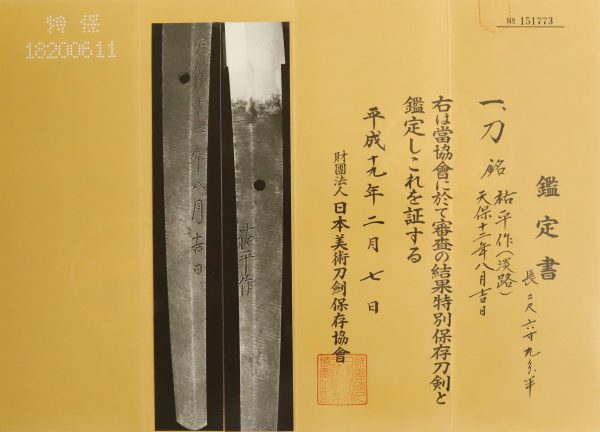 特保
18200611
№ 151773
鑑定書
一、刀 銘 祐平作(淡路)
天保十二年八月吉日
長二尺六寸九分半
右は當協會に於て審査の結果特別保存刀剣と
鑑定しこれを証する
平成十九年二月七日
財團法人 日本美術刀劍保存協會
天保十二年八月吉日
祐平作